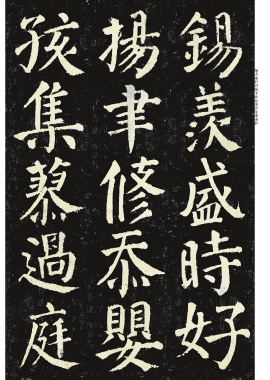 錫羨盛時好
揚聿修忝嬰
孩集蓼過庭